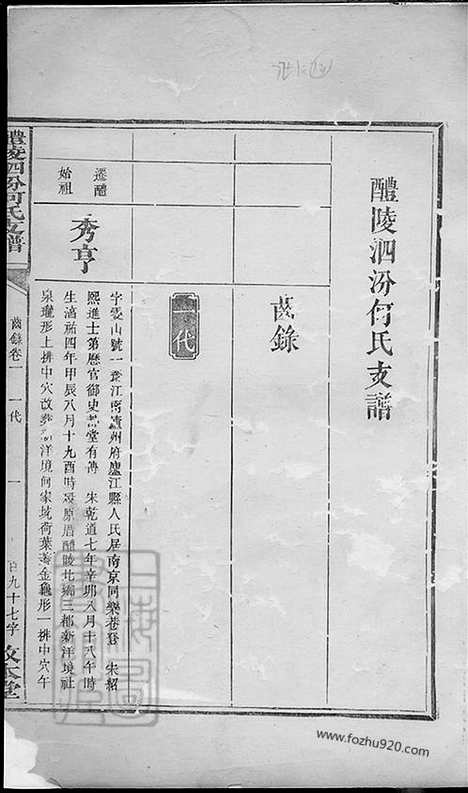 醴陵泗汾何氏支譜
齒錄
一代
遷醴
始祖
秀亨
字雲山號一齋江南廬州府廬江縣人民居南京同樂巷登 朱紹
熙進士第歷官御史 堂有傳 朱乾道七年辛卯八月十八午時
生 祐四年甲辰八月十九酉時歿原厝醴陵北鄉三都新洋境社
泉瓏形上排中穴改葬 洋境何家坺荷葉 金龜形一排中穴午
醴陵泗汾何氏支譜
齒錄卷一
一代
一
九十七字
敦本堂
www.fozhu920.com